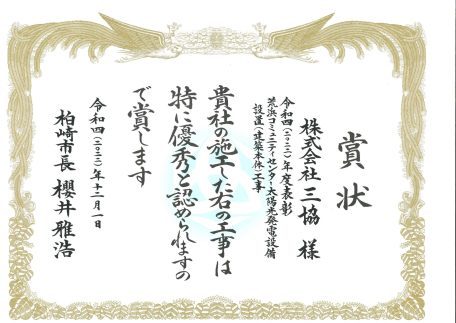 賞状
株式会社 三協 様
令和四(二〇二二)年度表彰
荒浜コミュニティセンター太陽光発電設備
設置(建築本体)工事
貴社の施工した右の工事は
特に優秀と認められますの
で賞します
令和四(二〇二二)年十一月一日
柏崎市長 櫻井雅浩